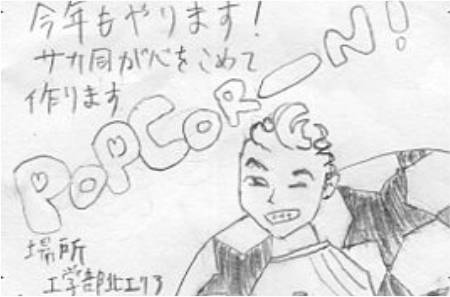 今年もやります!
サカ同が心をこめて
作ります
POPCORN!
場所
工学部北エリア